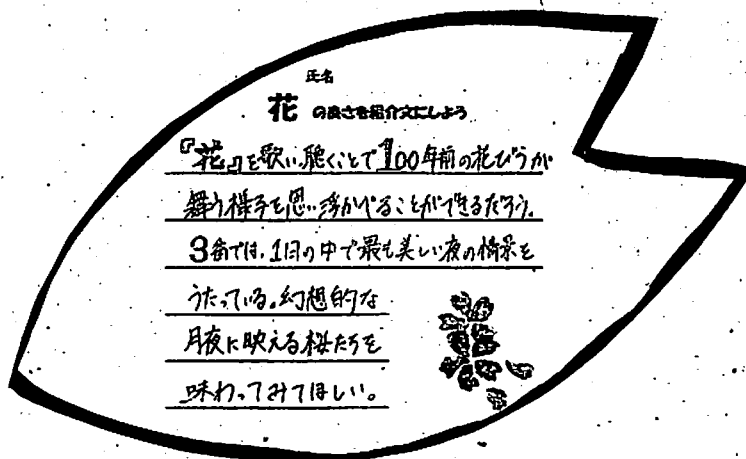 氏名
花 の良さを紹介文にしよう
『花』を歌い、聴くことで100年前の花びらが
舞う様子を思い浮かべることができるだろう。
3番では、1日の中で最も美しい夜の情景を
うたっている。幻想的な
月夜に映える桜たちを
味わってみてほしい。